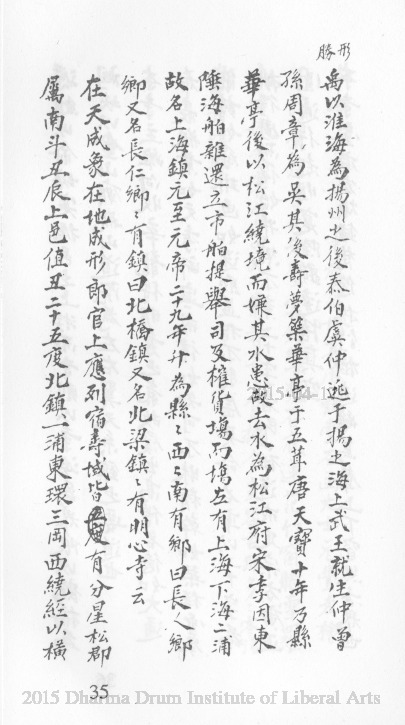 形勝
禹以淮海為揚州之後泰伯虞仲遜于揚之海上武王就生仲曾
孫周章為吳其後壽夢築華亭于五茸唐天寶十年乃縣
華亭後以松江繞境而嫌其水患故去水為松江府宋季因東
陲海舶雜還立市舶提舉司及榷貨場而塲左有上海下海二浦
故名上海鎮元至元帝二十九年升為縣〻西〻南有鄉曰長人鄉
鄉又名長仁鄉〻有鎮曰北橋鎮又名北梁鎮〻有明心寺云
在天成象在地成形郎官上應列宿壽域皆度有分星松郡
屬南斗丑辰上邑值丑二十五度北鎮一浦東環三岡西繞經以橫
35
2015 Dharma Drum Institute of Liberal Arts